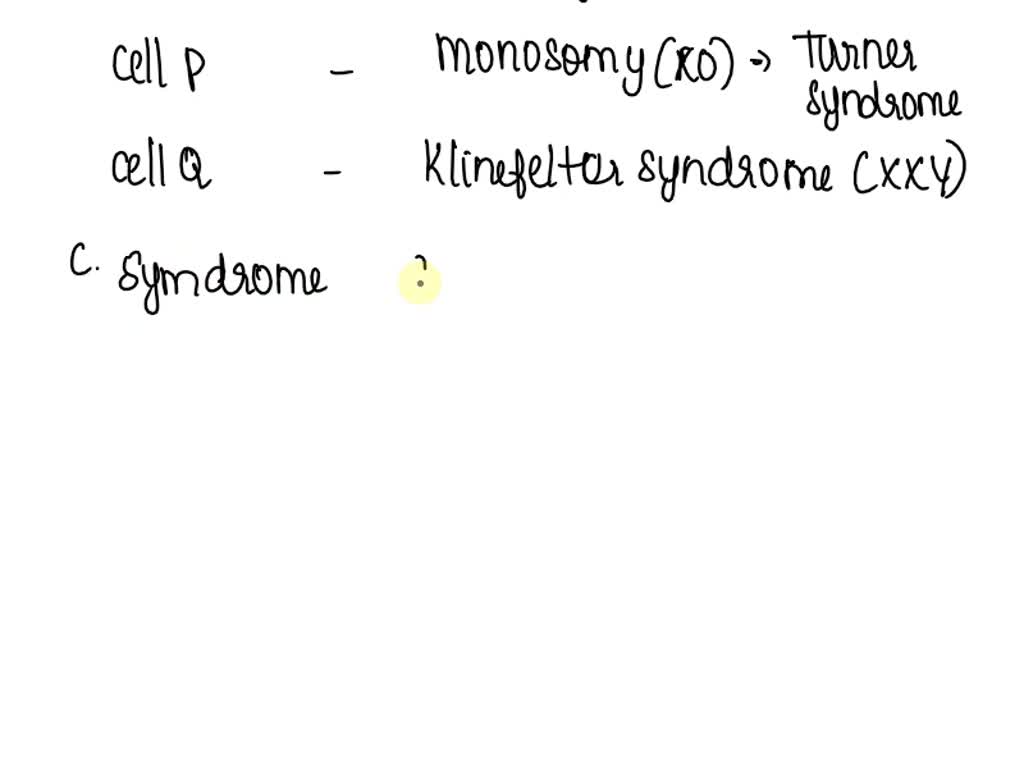 cell P - monosomy (XO) → Turner syndrome
cell Q - Klinefeltar syndrome (XXY)
C. Symdrome